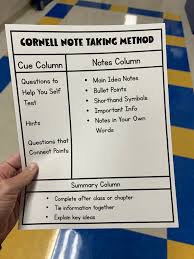 CORNELL NOTE TAKING METHOD
Cue Column
Questions to
Help You Self
Test
Hints
Questions that
Connect Points
Notes Column
• Main Idea Notes
• Bullet Points
• Shorthand Symbols
• Important Info
• Notes in Your Own
Words
Summary Column
• Complete after class or chapter
• Tie information together
• Explain key ideas